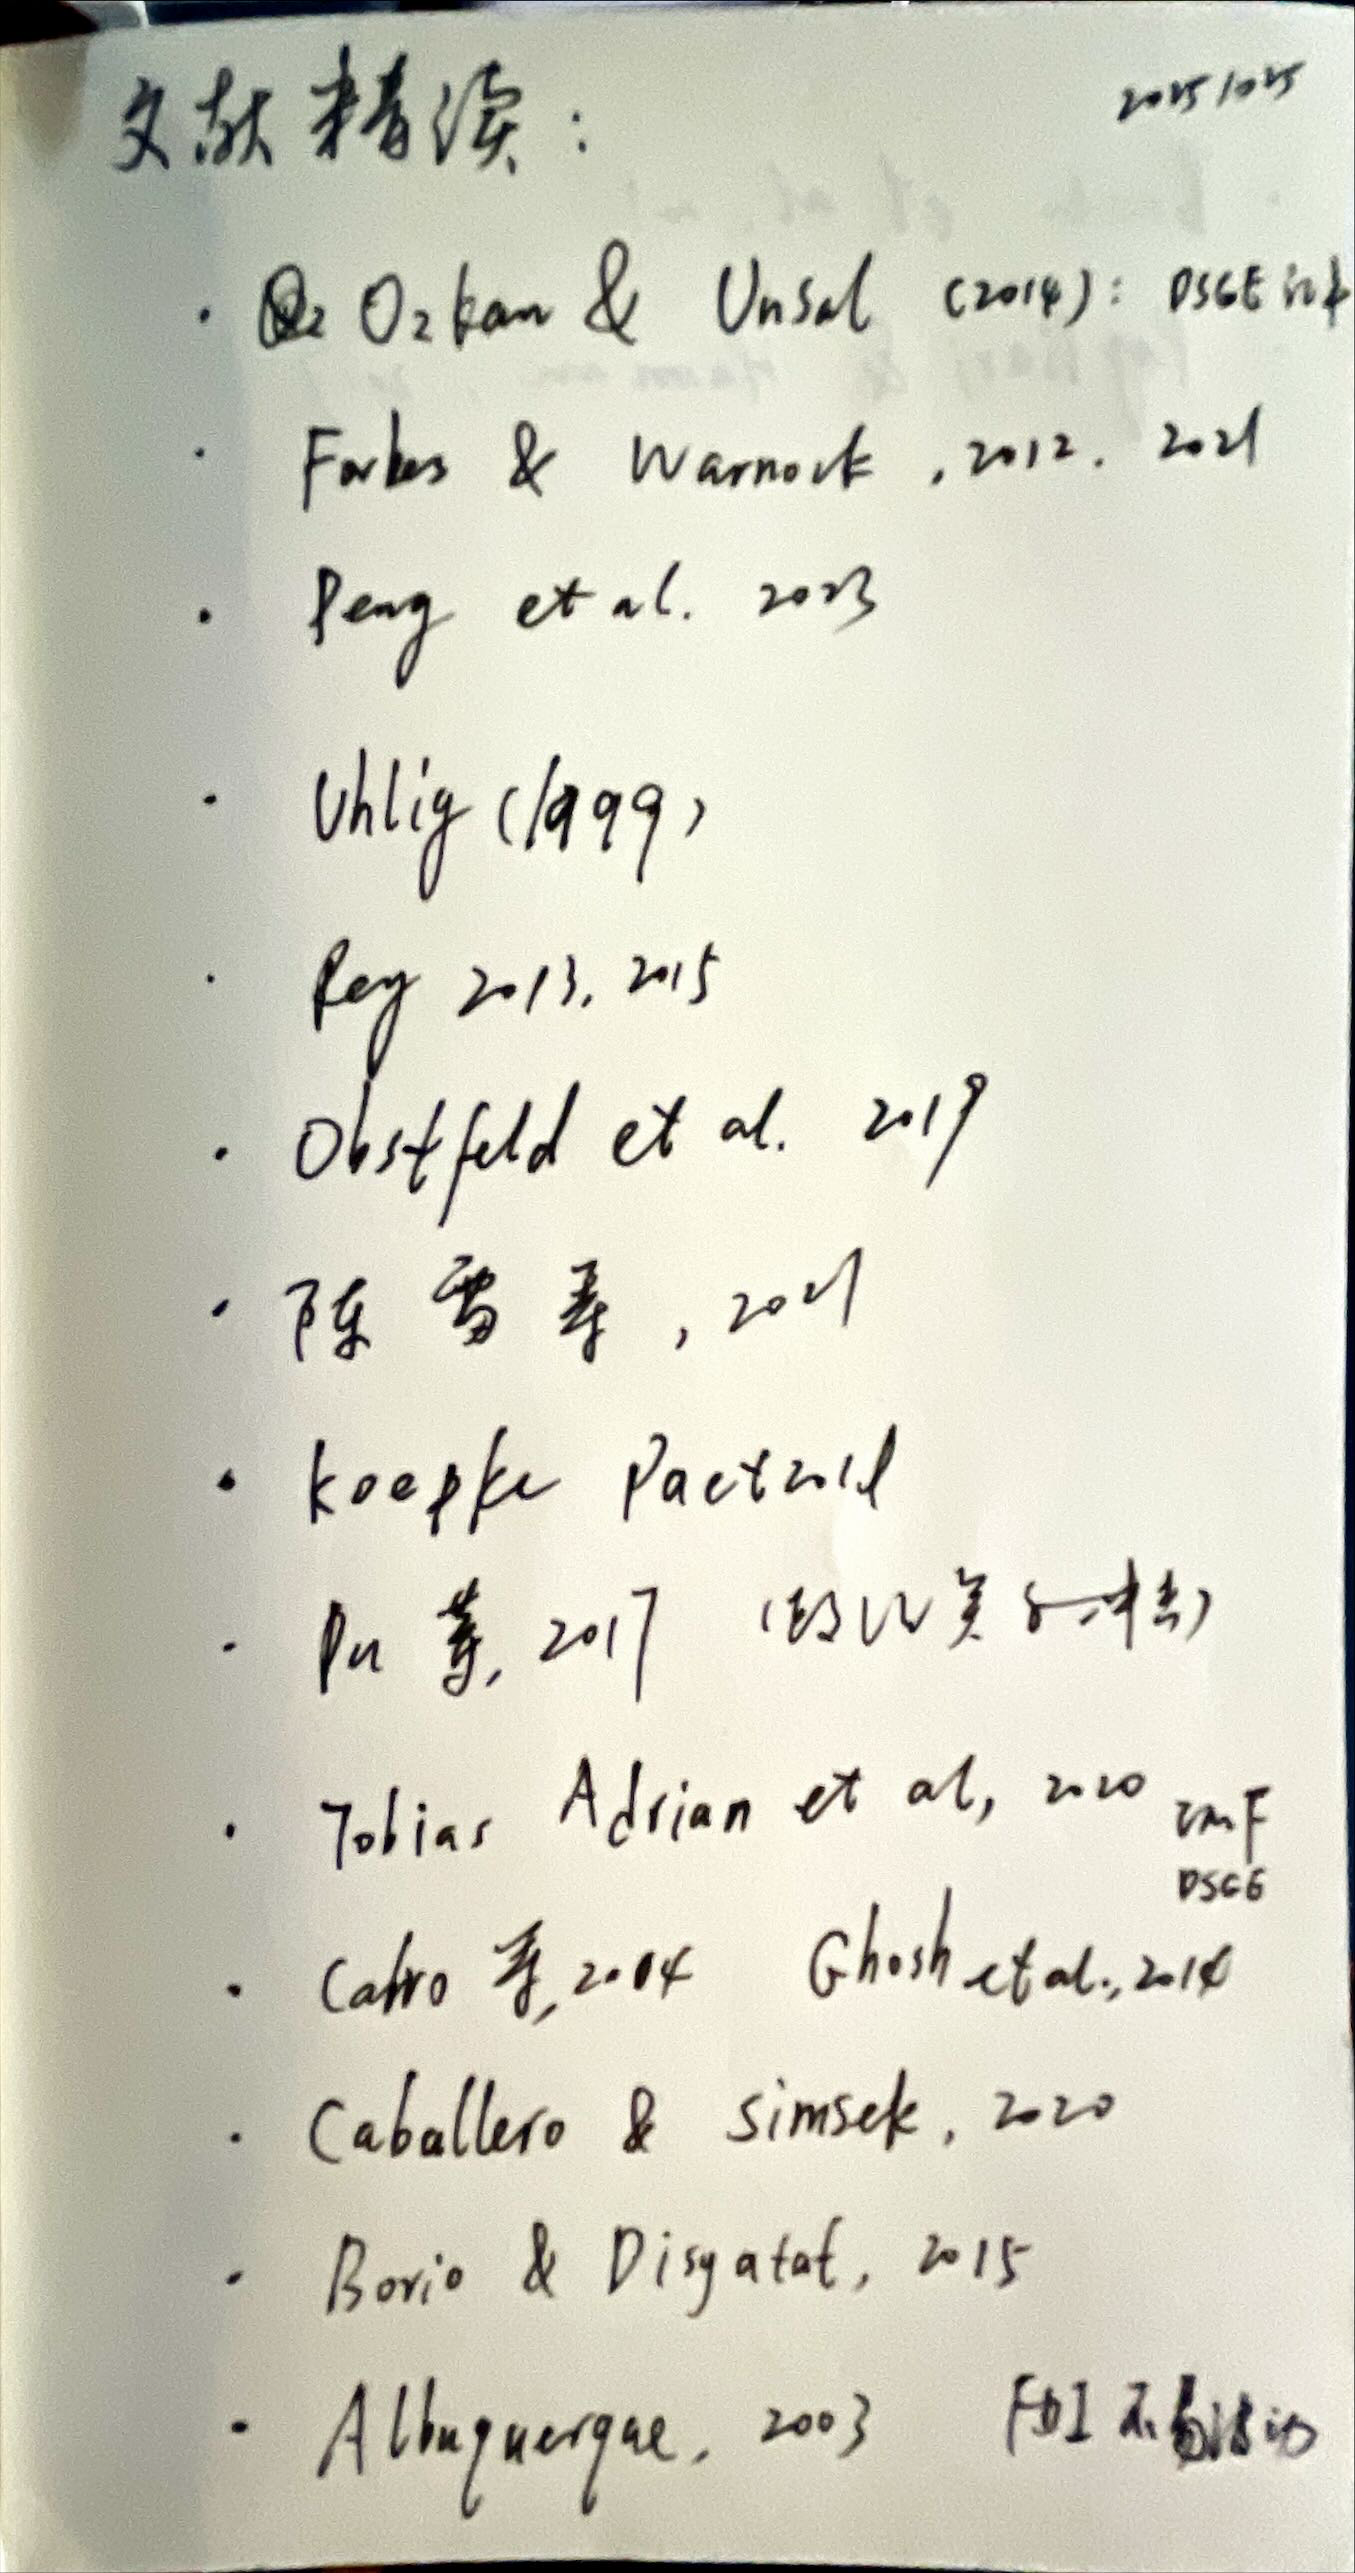 文献精读： 20251025
· Ozkan & Unsal (2014): DSGE
· Forbes & Warnock, 2012. 2021
· Peng et al. 2023
· Uhlig (1999)
· Rey 2013, 2015
· Obstfeld et al. 2019
· 陈雷等, 2021
· Koepke Paet 2018
· Pu 等, 2017
· Tobias Adrian et al, 2020 IMF
DSGE
· Calvo 等, 2004 Ghosh et al., 2014
· Caballero & Simsek, 2020
· Borio & Disyatat, 2015
· Albuquerque, 2003 FDI